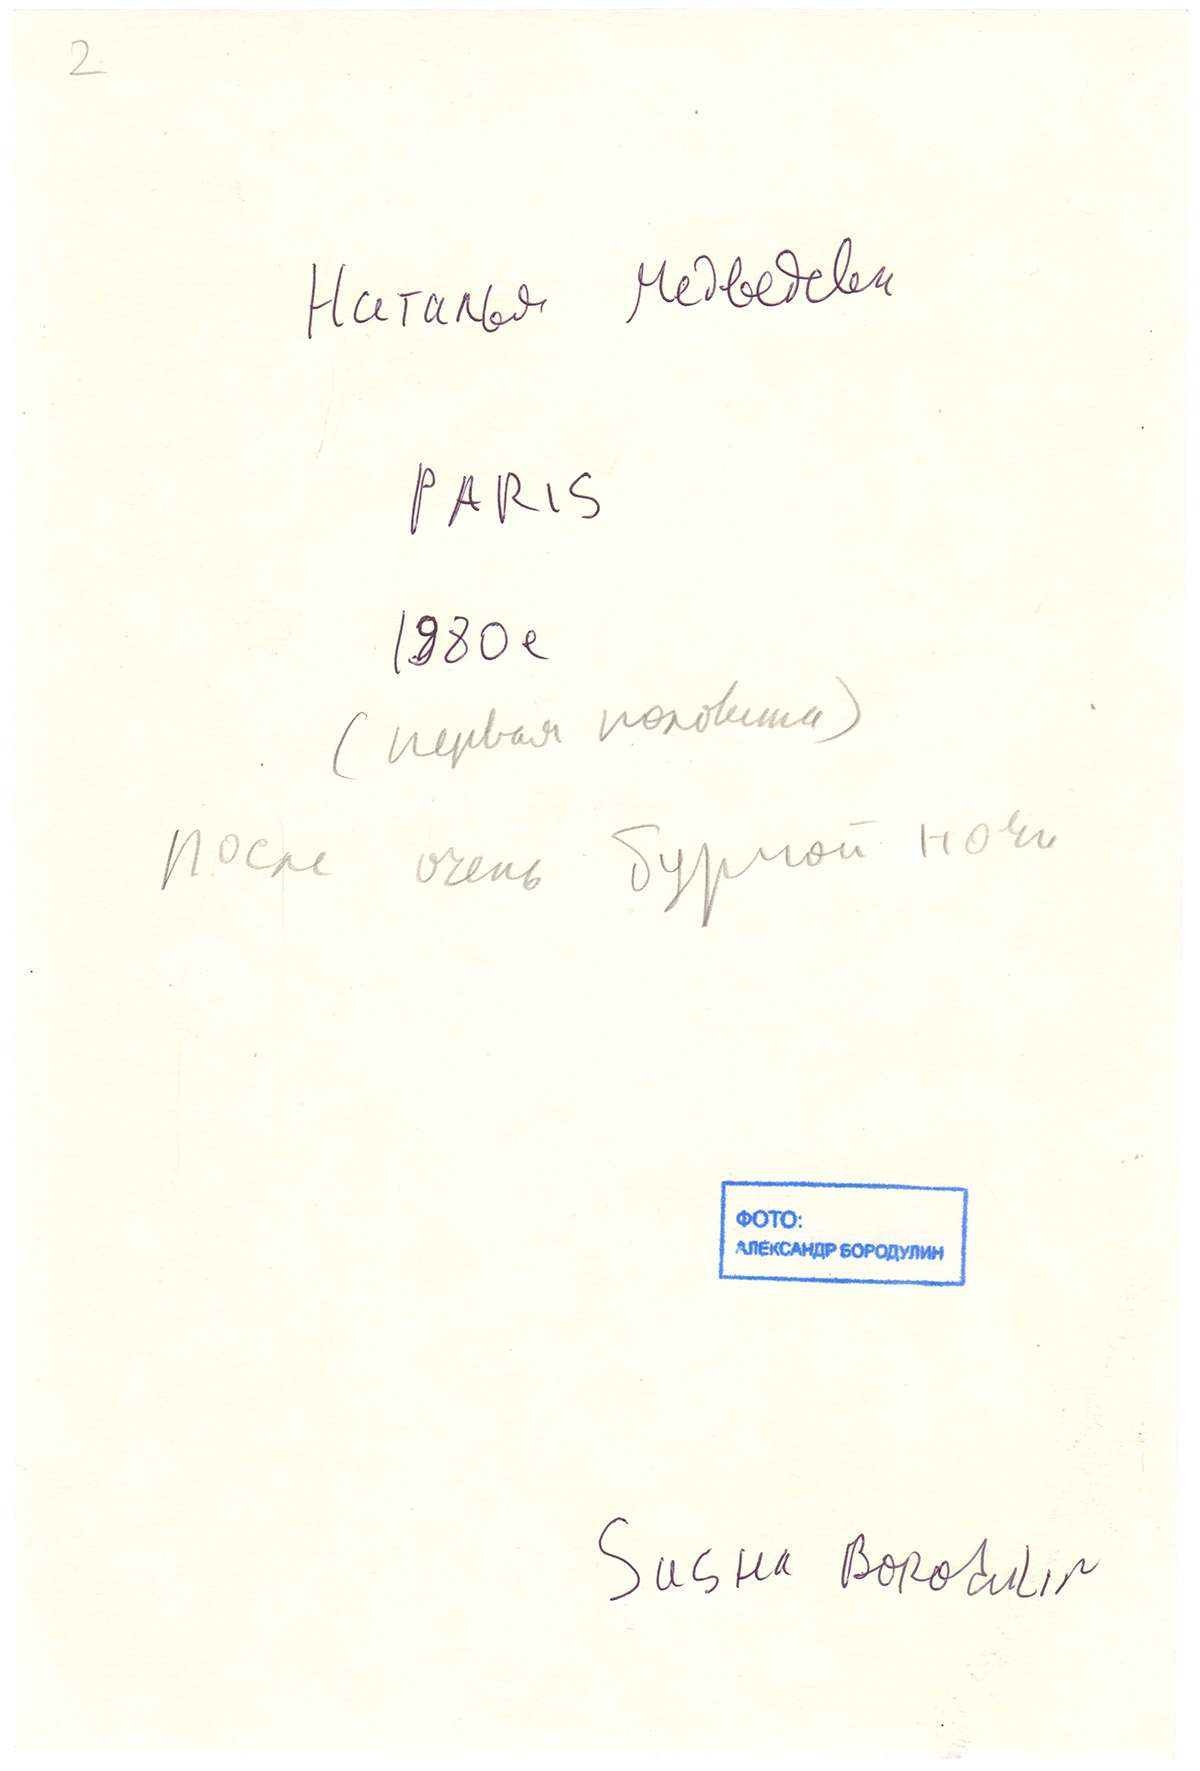 2
Наталья Медведева
PARIS
1980е
(первая половина)
после очень бурной ночи
ФОТО:
АЛЕКСАНДР БОРОДУЛИН
Sasha Borodulin